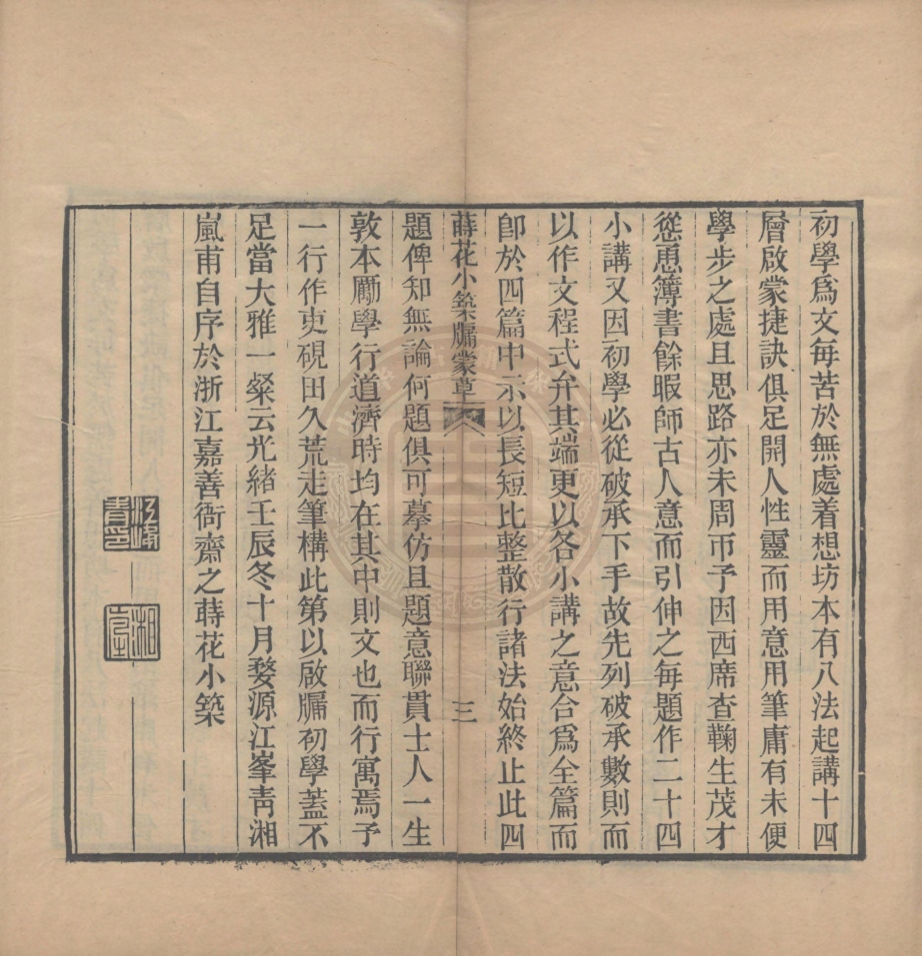 初學爲文每苦於無處着想坊本有八法起講十四
層啟蒙捷訣俱足開人性靈而用意用筆庸有未便
學步之處且思路亦未周帀予因西席查鞠生茂才
慫恿簿書餘暇師古人意而引伸之每題作二十四
小講又因初學必從破承下手故先列破承數則而
以作文程式弁其端更以各小講之意合爲全篇而
卽於四篇中示以長短比整散行諸法始終止此四
蒔花小築牖蒙草 三
題俾知無論何題俱可摹仿且題意聯貫士人一生
敦本勵學行道濟時均在其中則文也而行寓焉予
一行作吏硯田久荒走筆構此第以啟牖初學蓋不
足當大雅一粲云光緒壬辰冬十月婺源江峯靑湘
嵐甫自序於浙江嘉善衙齋之蒔花小築